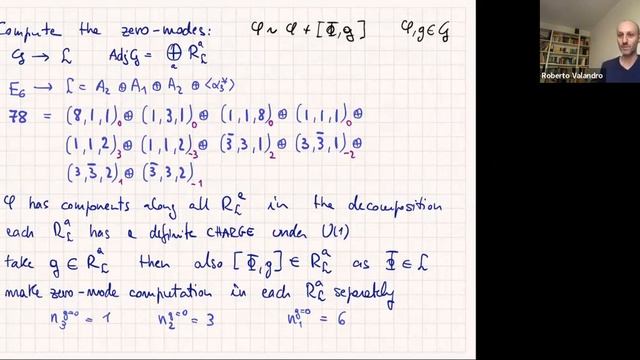 Compute the zero-modes: φ ~ φ + [Φ, g] φ, g ∈ G
G → L Adj G = ⊕_a R_L^a
E_6 → L = A_2 ⊕ A_1 ⊕ A_2 ⊕ <α_3^*>
78 = (8,1,1)_0 ⊕ (1,3,1)_0 ⊕ (1,1,8)_0 ⊕ (1,1,1)_0 ⊕
(1,1,2)_3 ⊕ (1,1,2)_-3 ⊕ (3̄,3,1)_2 ⊕ (3,3̄,1)_-2 ⊕
(3,3̄,2)_1 ⊕ (3̄,3,2)_-1
φ has components along all R_L^a in the decomposition
each R_L^a has a definite CHARGE under U(1)
take g ∈ R_L^a then also [Φ, g] ∈ R_L^a as Φ ∈ L
make zero-mode computation in each R_L^a separately
n_3^{g=0} = 1 n_2^{g=0} = 3 n_1^{g=0} = 6
Roberto Valandro